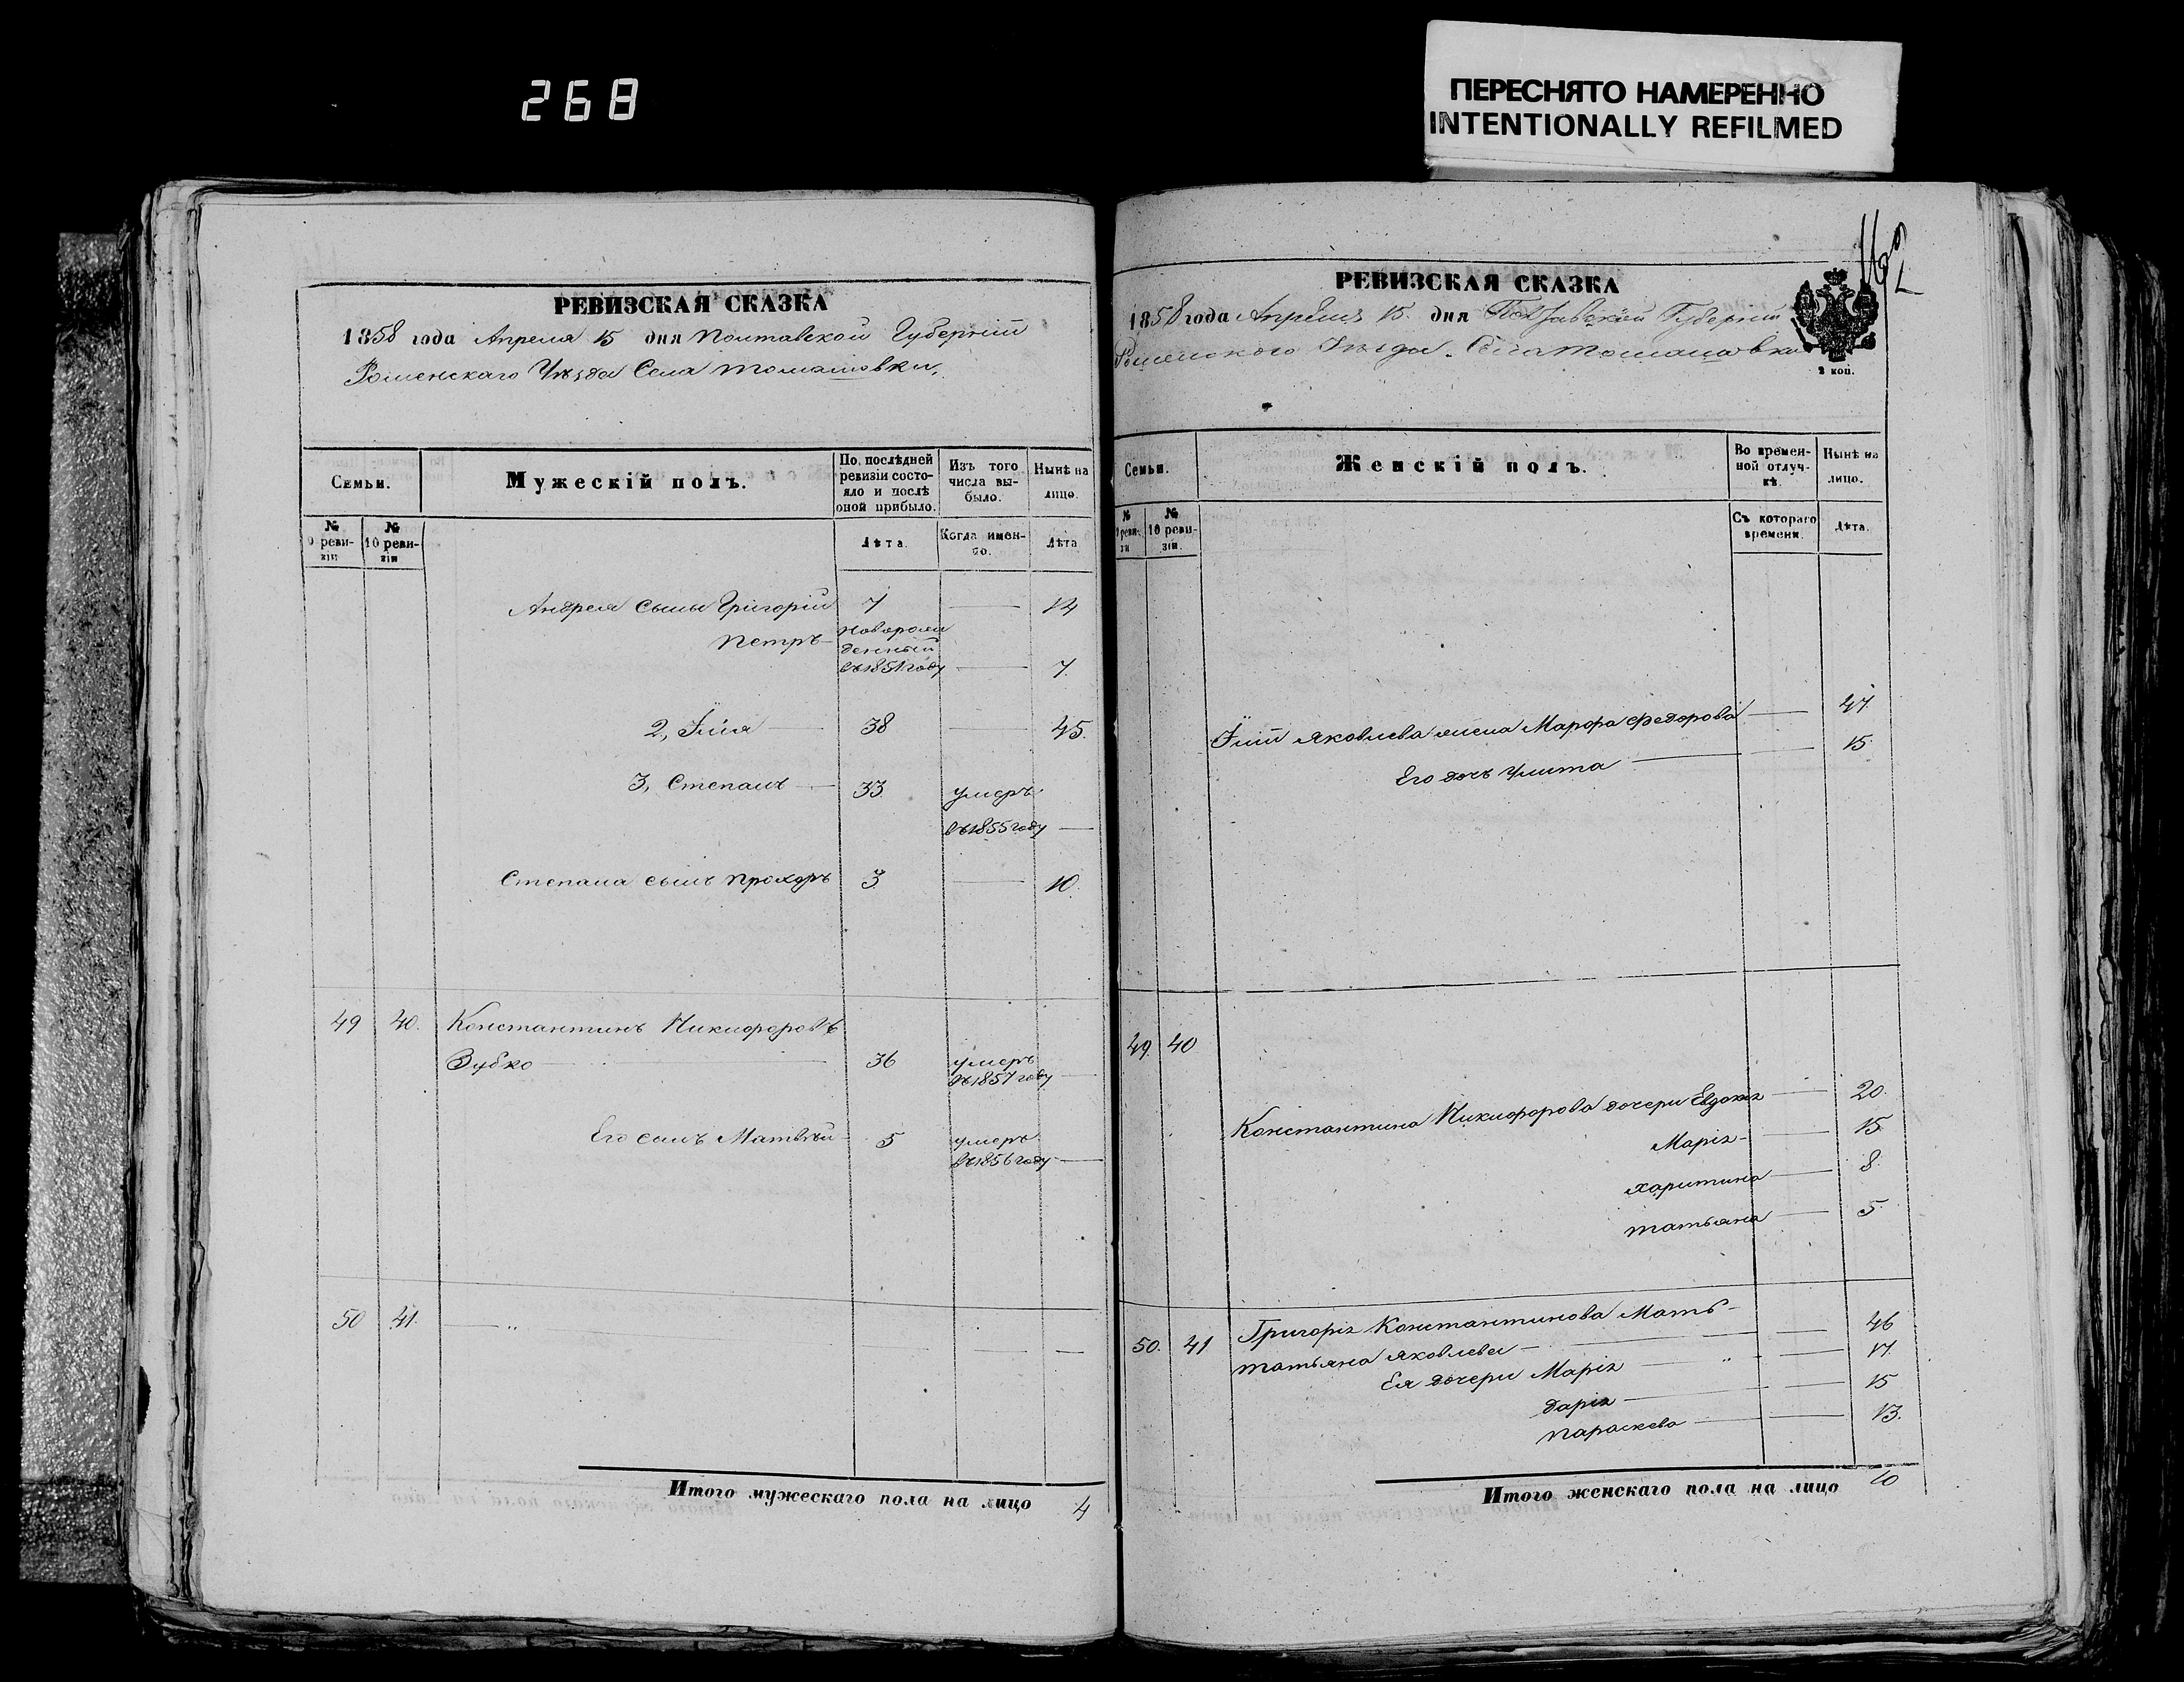 268
ПЕРЕСНЯТО НАМЕРЕННО
INTENTIONALLY REFILMED
РЕВИЗСКАЯ СКАЗКА
1858 года Апреля 15 дня Полтавской Губерніи
Роменскаго Уѣзда Села Томашовки,
Семьи.
Мужескій полъ.
По послѣдней ревизіи состояло и послѣ оной прибыло.
Изъ того числа выбыло.
Нынѣ на лицо.
№ 9 ревизіи
№ 10 ревизіи
Лѣта.
Когда именно.
Лѣта
Андрея сыны Григорій 7 — 14
Петръ — новорож
денный
въ 1851 году — 7.
2, Илія — 38 — 45.
3, Степанъ — 33 умеръ
въ 1855 году —
Степана сынъ Прохоръ 3 — 10.
49 40. Константинъ Никифоровъ
Зубко — 36 умеръ
въ 1857 году —
Его сынъ Матвѣй — 5 умеръ
въ 1856 году —
50 41. — „ — — —
Итого мужескаго пола на лицо 4
РЕВИЗСКАЯ СКАЗКА
1858 года Апреля 15. дня Полтавской Губерніи
Роменского Уѣзда. Села Томашовки
2 коп.
Семьи.
Женскій полъ.
Во временной отлучкѣ.
Нынѣ на лицо.
№ 9 ревизіи
№ 10 ревизіи.
Съ котораго времени.
Лѣта.
Иліи Яковлева жена Марфа Федорова — 47
Его дочь Улита — 15.
49. 40
Константина Никифорова дочери Евдокія — 20.
Марія — 15
Харитина — 8.
Татьяна — 5.
50. 41 Григорія Константинова Мать —
Татьяна Яковлева — 46
Ея дочери Марія — „ — 17.
Дарія — 15
Параскева — 13.
Итого женскаго пола на лицо 10